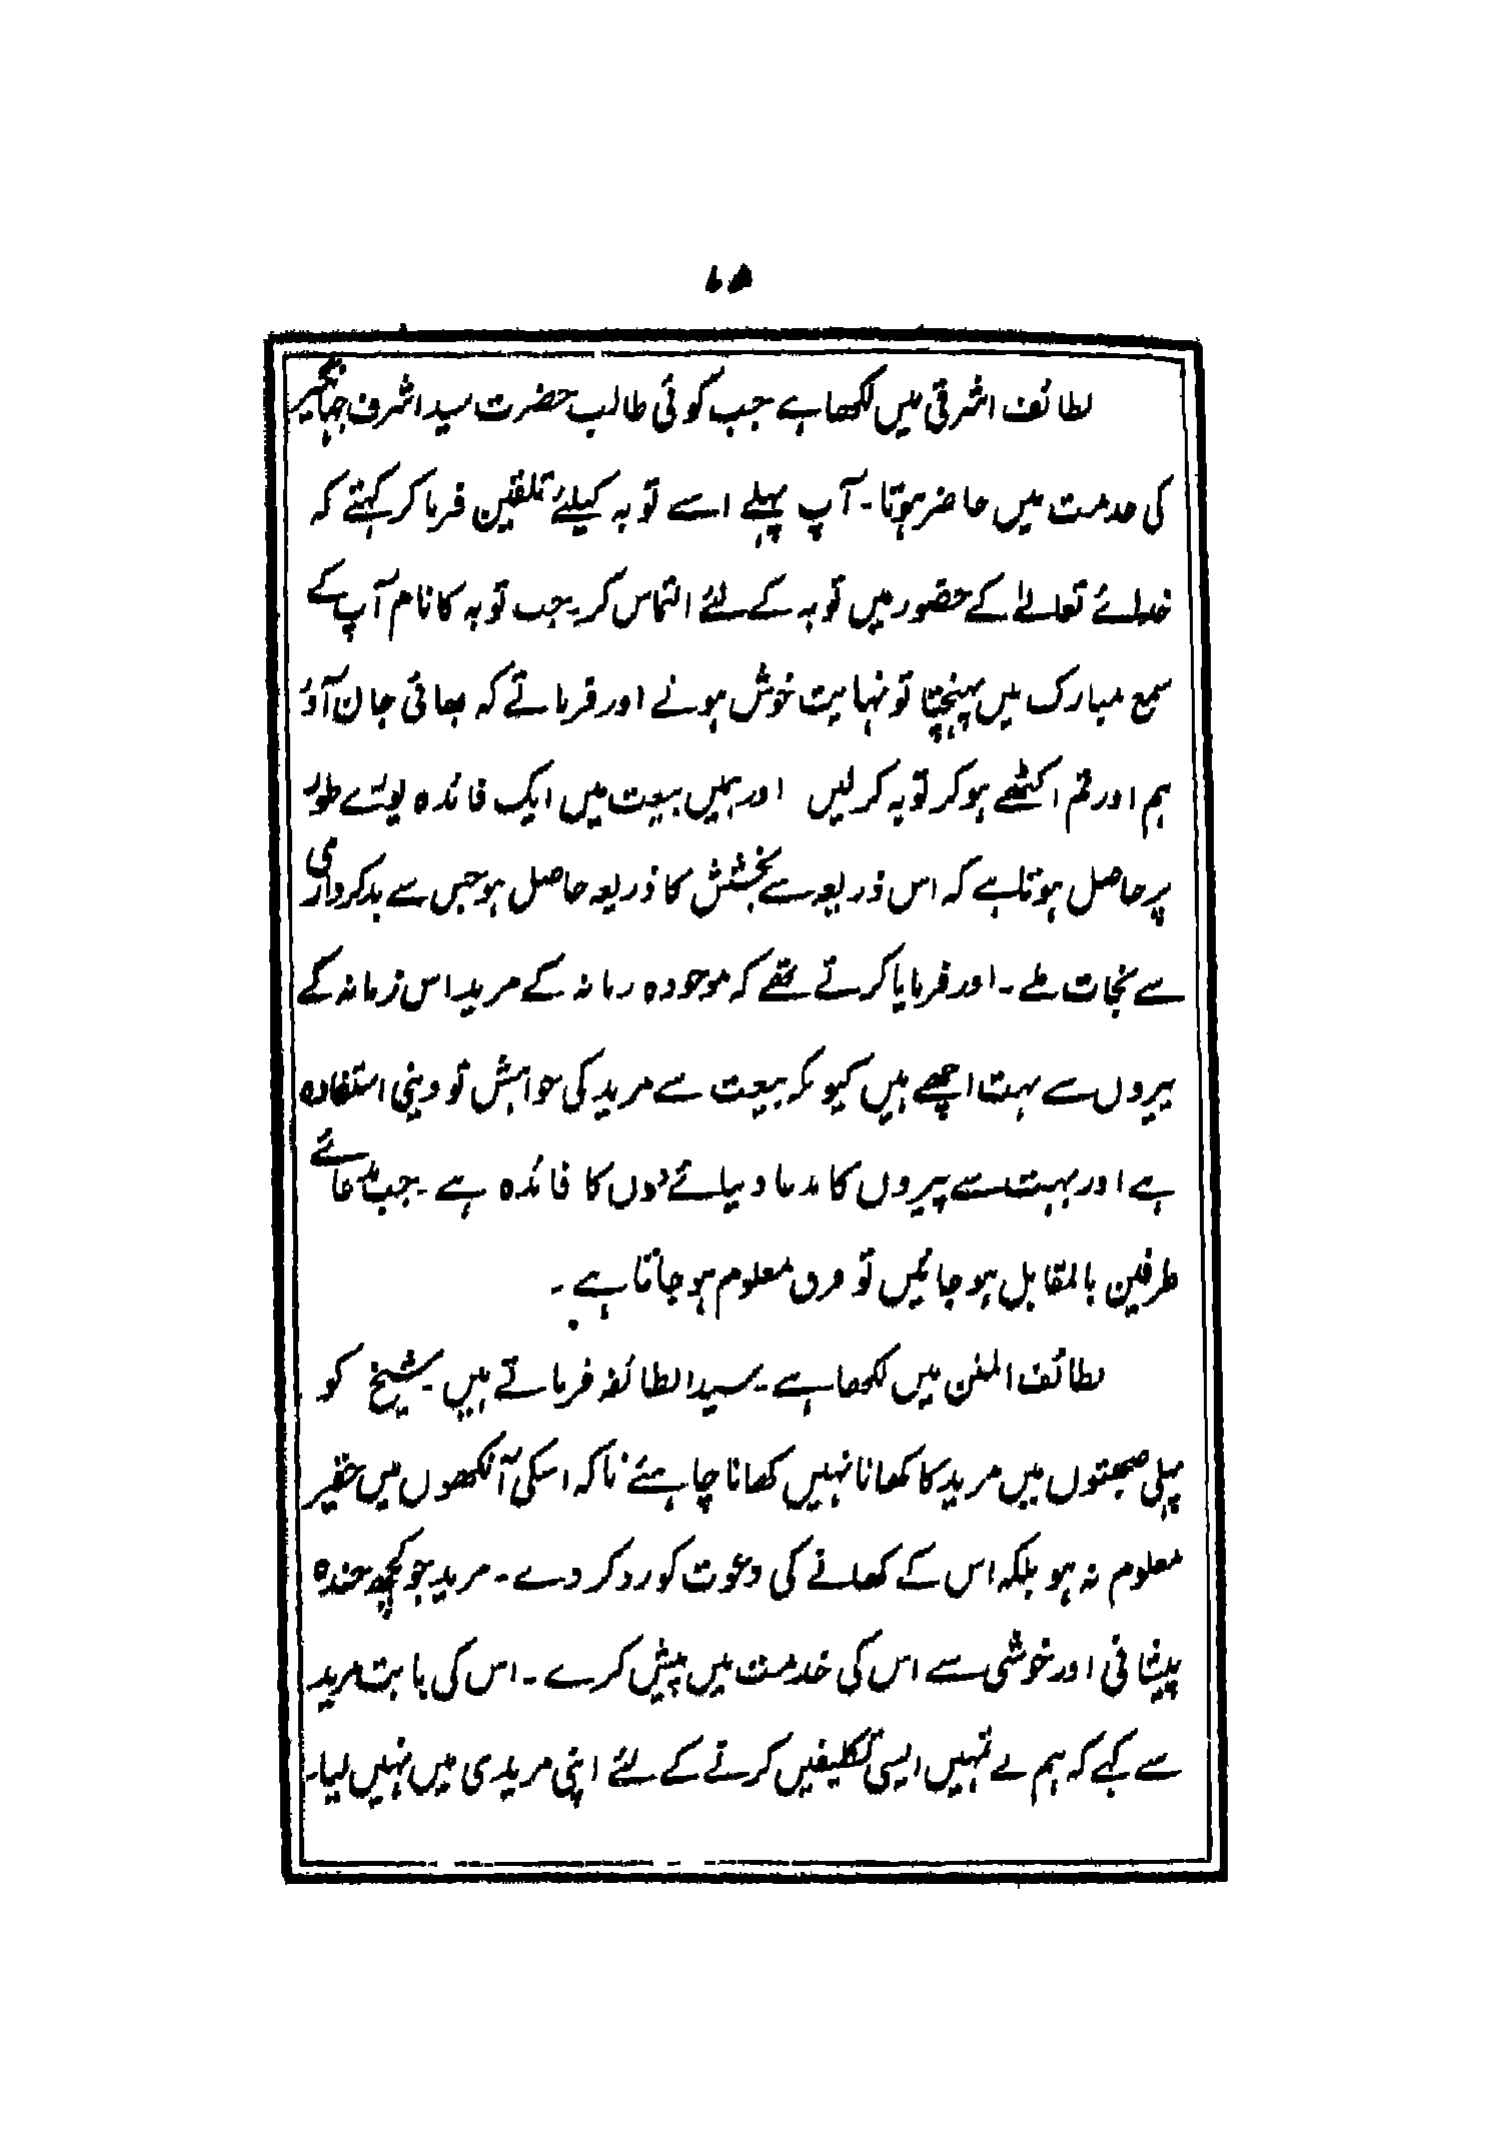 لطائف اشرفی میں لکھا ہے جب کوئی طالب حضرت سید اشرف جہانگیر
کی خدمت میں حاضر ہوتا۔ آپ پہلے اسے توبہ کیلئے تلقین فرما کر کہتے کہ
خدائے تعالےٰ کے حضور میں توبہ کے لئے التماس کر۔ جب توبہ کا نام آپ کے
سمع مبارک میں پہنچتا تو نہایت خوش ہوتے اور فرماتے کہ بھائی جان آؤ
ہم اور تم اکٹھے ہو کر توبہ کر لیں اور ہمیں بیعت میں ایک فائدہ پورے طور
پر حاصل ہوتا ہے کہ اس ذریعہ سے بخشش کا ذریعہ حاصل ہو جس سے بدکرداری
سے نجات ملے۔ اور فرمایا کرتے تھے کہ موجودہ زمانہ کے مرید اس زمانہ کے
پیروں سے بہت اچھے ہیں کیونکہ بیعت سے مرید کی خواہش تو دینی استفادہ
ہے اور بہت سے پیروں کا مدعا دنیائے دوں کا فائدہ ہے۔ جب مدعائے
طرفین بالمقابل ہو جائیں تو فرق معلوم ہو جاتا ہے۔
لطائف المنن میں لکھا ہے۔ سید الطائفہ فرماتے ہیں۔ شیخ کو
پہلی صحبتوں میں مرید کا کھانا نہیں کھانا چاہئے تاکہ اسکی آنکھوں میں حقیر
معلوم نہ ہو بلکہ اس کے کھانے کی دعوت کو رد کر دے۔ مرید جو کچھ خندہ
پیشانی اور خوشی سے اس کی خدمت میں پیش کرے۔ اس کی بابت مرید
سے کہے کہ ہم نے تمہیں ایسی تکلیفیں کرنے کے لئے اپنی مریدی میں نہیں لیا۔